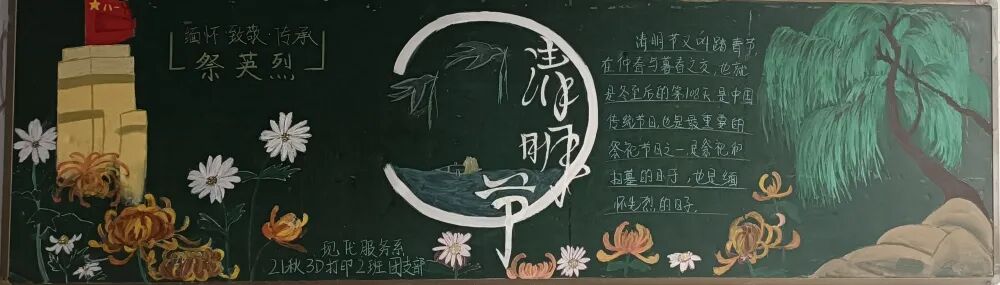 八一
缅怀 致敬 传承
祭英烈
清明节
现代服务系
21秋3D打印2班团支部
清明节又叫踏青节,
在仲春与暮春之交,也就
是冬至后的第108天.是中国
传统节日,也是最重要的
祭祀节日之一.是祭祀和
扫墓的日子,也是缅
怀先烈的日子.